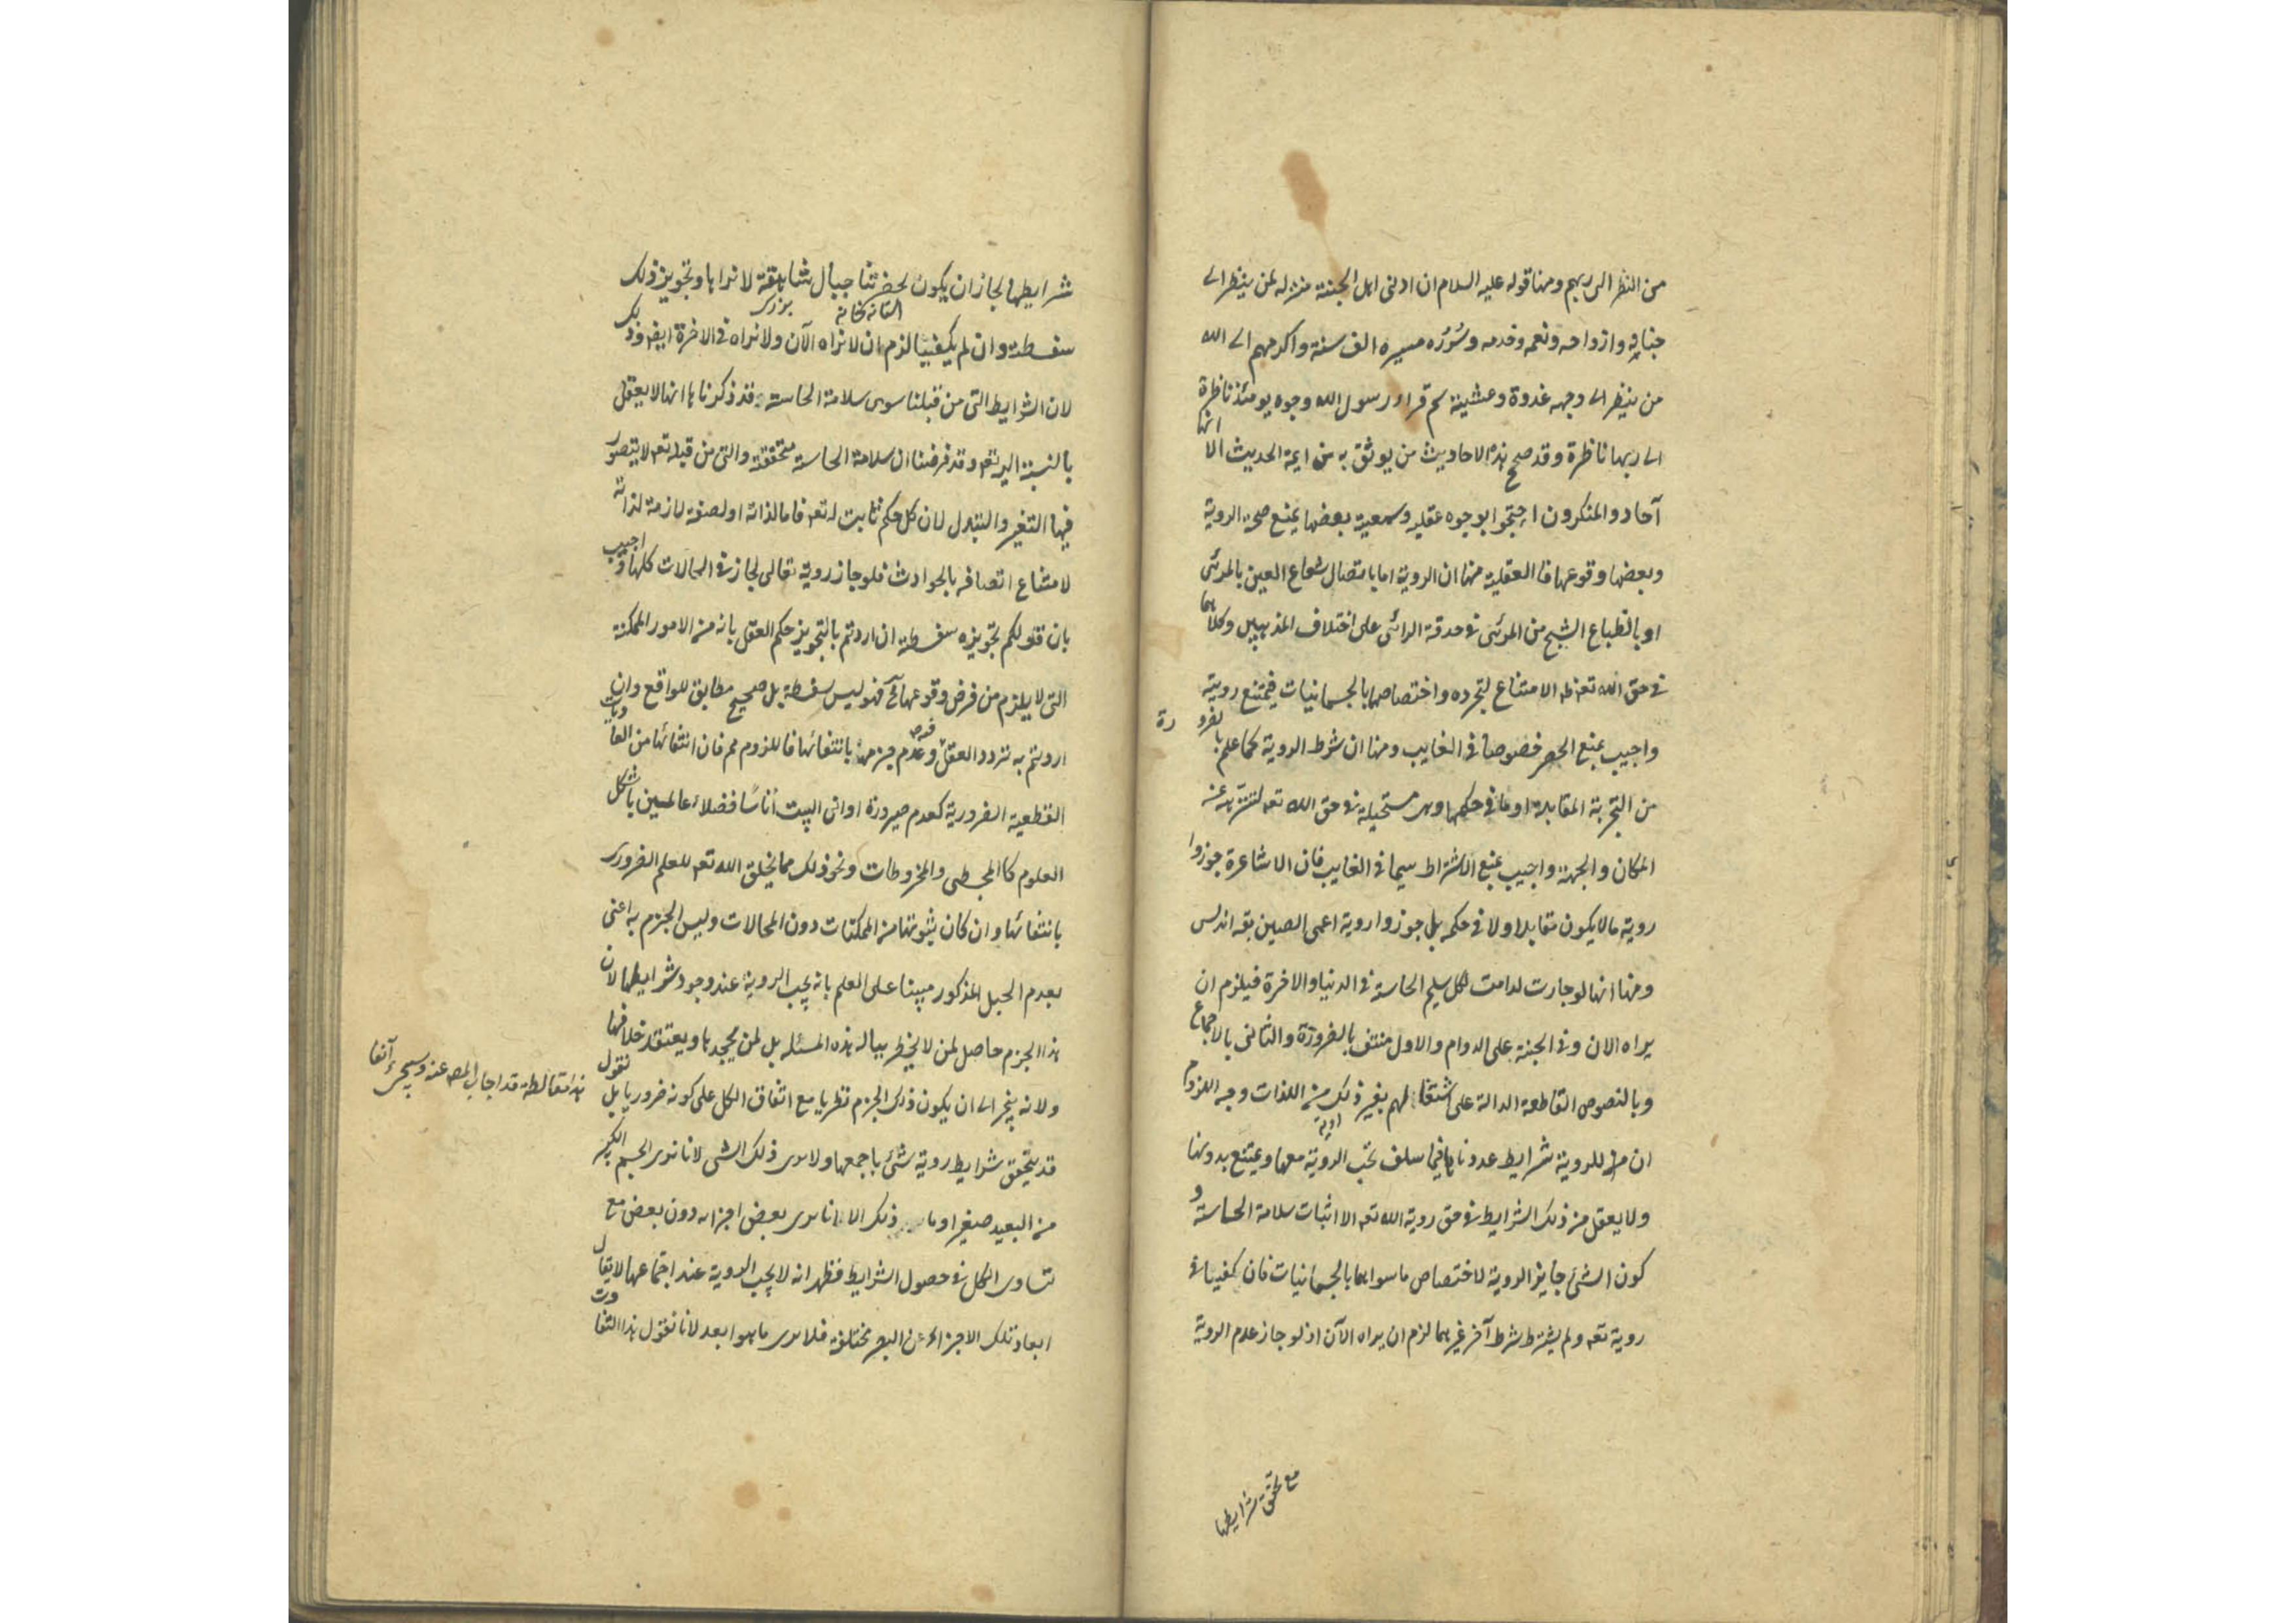 من النظر الى ربهم ومنها قوله عليه السلام ان ادنى اهل الجنة منزله لمن ينظر الى
جنانه وازواجه ونعمه وخدمه وسُرُره مسيره الف سنة واكرمهم الى الله
من ينظر الى وجهه غدوة وعشية ثم قراء رسول الله وجوه يومئذ ناظرة
الى ربها ناظرة وقد صحح هذه الاحاديث من يوثق به من ايمة الحديث الا انها
آحاد والمنكرون احتجوا بوجوه عقليه وسمعية بعضها يمنع صحة الروية
وبعضها وقوعها فالعقلية منها ان الروية اما باتصال شعاع العين بالمرئى
او بانطباع الشبح من المرئى فى حدقة الرائى على اختلاف المذهبين وكلاهما
فى حق الله تعه ظه الامتناع لتجرده واختصاصهما بالجسمانيات فيمتنع رويته
واجيب بمنع الحصر خصوصا فى الغايب ومنها ان شرط الروية كما علم بالضرورة
من التجربة المقابلة او ما فى حكمها وهى مستحيلة فى حق الله تعه لتنزهه عنه
المكان والجهة واجيب بمنع الاشتراط سيما فى الغايب فان الاشاعرة جوزوا
روية ما لا يكون مقابلا ولا فى حكمه بل جوزوا روية اعمى الصين بقه اندلس
ومنها انها لو جازت لدامت لكل سليم الحاسة فى الدنيا والاخرة فيلزم ان
يراه الان وفى الجنة على الدوام والاول منتف بالضرورة والثانى بالاجماع
وبالنصوص القاطعة الدالة على اشتغالهم بغير ذلك من اللذات وجه اللزوم
ان للروية شرايط عددناها فيما سلف تجب الروية معها ويمتنع بدونها
ولا يعقل من ذلك الشرايط فى حق روية الله تعه الا اثبات سلامة الحاسة و
كون الشئ جايز الروية لاختصاص ما سواهما بالجسمانيات فان كفيا فى
روية تعه ولم يشترط شرط آخر غيرهما لزم ان يراه الآن اذ لو جاز عدم الروية
مع تحقق شرايطها
شرايطها لجاز ان يكون بحضرتنا جبال شاهقة لا نراها وتجويز ذلك
بزرك
سفسطة وان لم يكفيا لزم ان لا نراه الآن ولا نراه فى الاخرة ايضه وذلك
لان الشرايط التى من قبلنا سوى سلامة الحاسة قد ذكرنا ها انها لا يعقل
بالنسبة اليه تعه وقد فرضنا ان سلامة الحاسة متحققة والتى من قبله تعه لا يتصور
فيها التغير والتبدل لان كل حكم ثابت له تعه فاما لذاته او لصفة لازمة لذاته
لامتناع اتصافه بالحوادث فلو جاز روية تعالى لجاز فى الحالات كلها واجيب
بان قولكم تجويزه سفسطة ان اردتم بالتجويز حكم العقل بانه من الامور الممكنة
التى لا يلزم من فرض وقوعها مح فهو ليس سفسطة بل صحيح مطابق للواقع وان
اردتم به تردد العقل فيه وعدم جزمه بانتفائها فاللزوم مم فان انتفائها من العاديات
القطعية الضرورية كعدم صيرورة اوانى البيت أناسًا فضلاء عالمين باشكل
العلوم كالمجسطى والمخروطات ونحو ذلك مما يخلق الله تعه للعلم الضرورى
بانتفائها وان كان ثبوتها من الممكنات دون المحالات وليس الجزم به اعنى
بعدم الجبل المذكور مبينا على العلم بانه يجب الروية عند وجود شرايطها لان
هذا الجزم حاصل لمن لا يخطر بباله هذه المسئله بل لمن يجحدها ويعتقد خلافها
ولانه ينجر الى ان يكون ذلك الجزم نظريا مع اتفاق الكل على كونه ضروريا بل نقول
هذا مغالطة قد اجاب المصه عنه وسيجئ آنفا
قد يتحقق شرايط روية شئ باجمعها ولا يرى ذلك الشى لانا نرى الجسم الكبير
من البعيد صغيرا وما ذلك الا انا نرى بعض اجزائه دون بعض مع
تساوى الكل فى حصول الشرايط فظهر انه لا يجب الروية عند اجتماعها لا يقال
ابعاد تلك الاجزاء عن البصر مختلفة فلا يرى ما هو ابعد لانا نقول هذا التفاوت